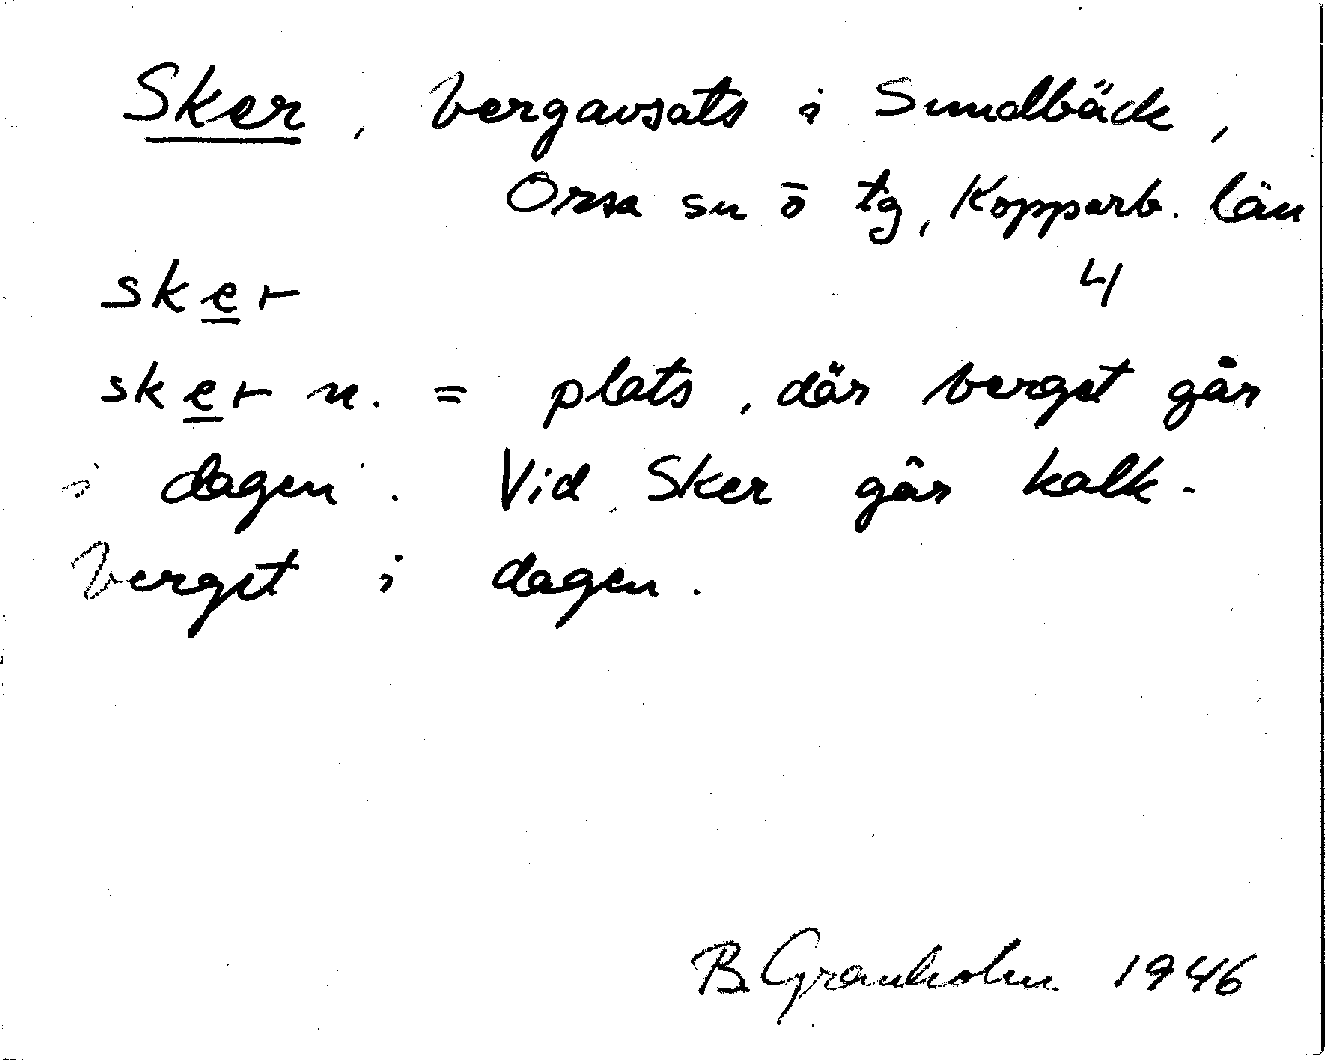 Sker, bergavsats i Sundbäck,
Orsa sn o tg, Kopparb. län
sker 4
sker n. = plats, där berget går
i dagen. Vid Sker går kalk-
berget i dagen.
B. Granholm 1946